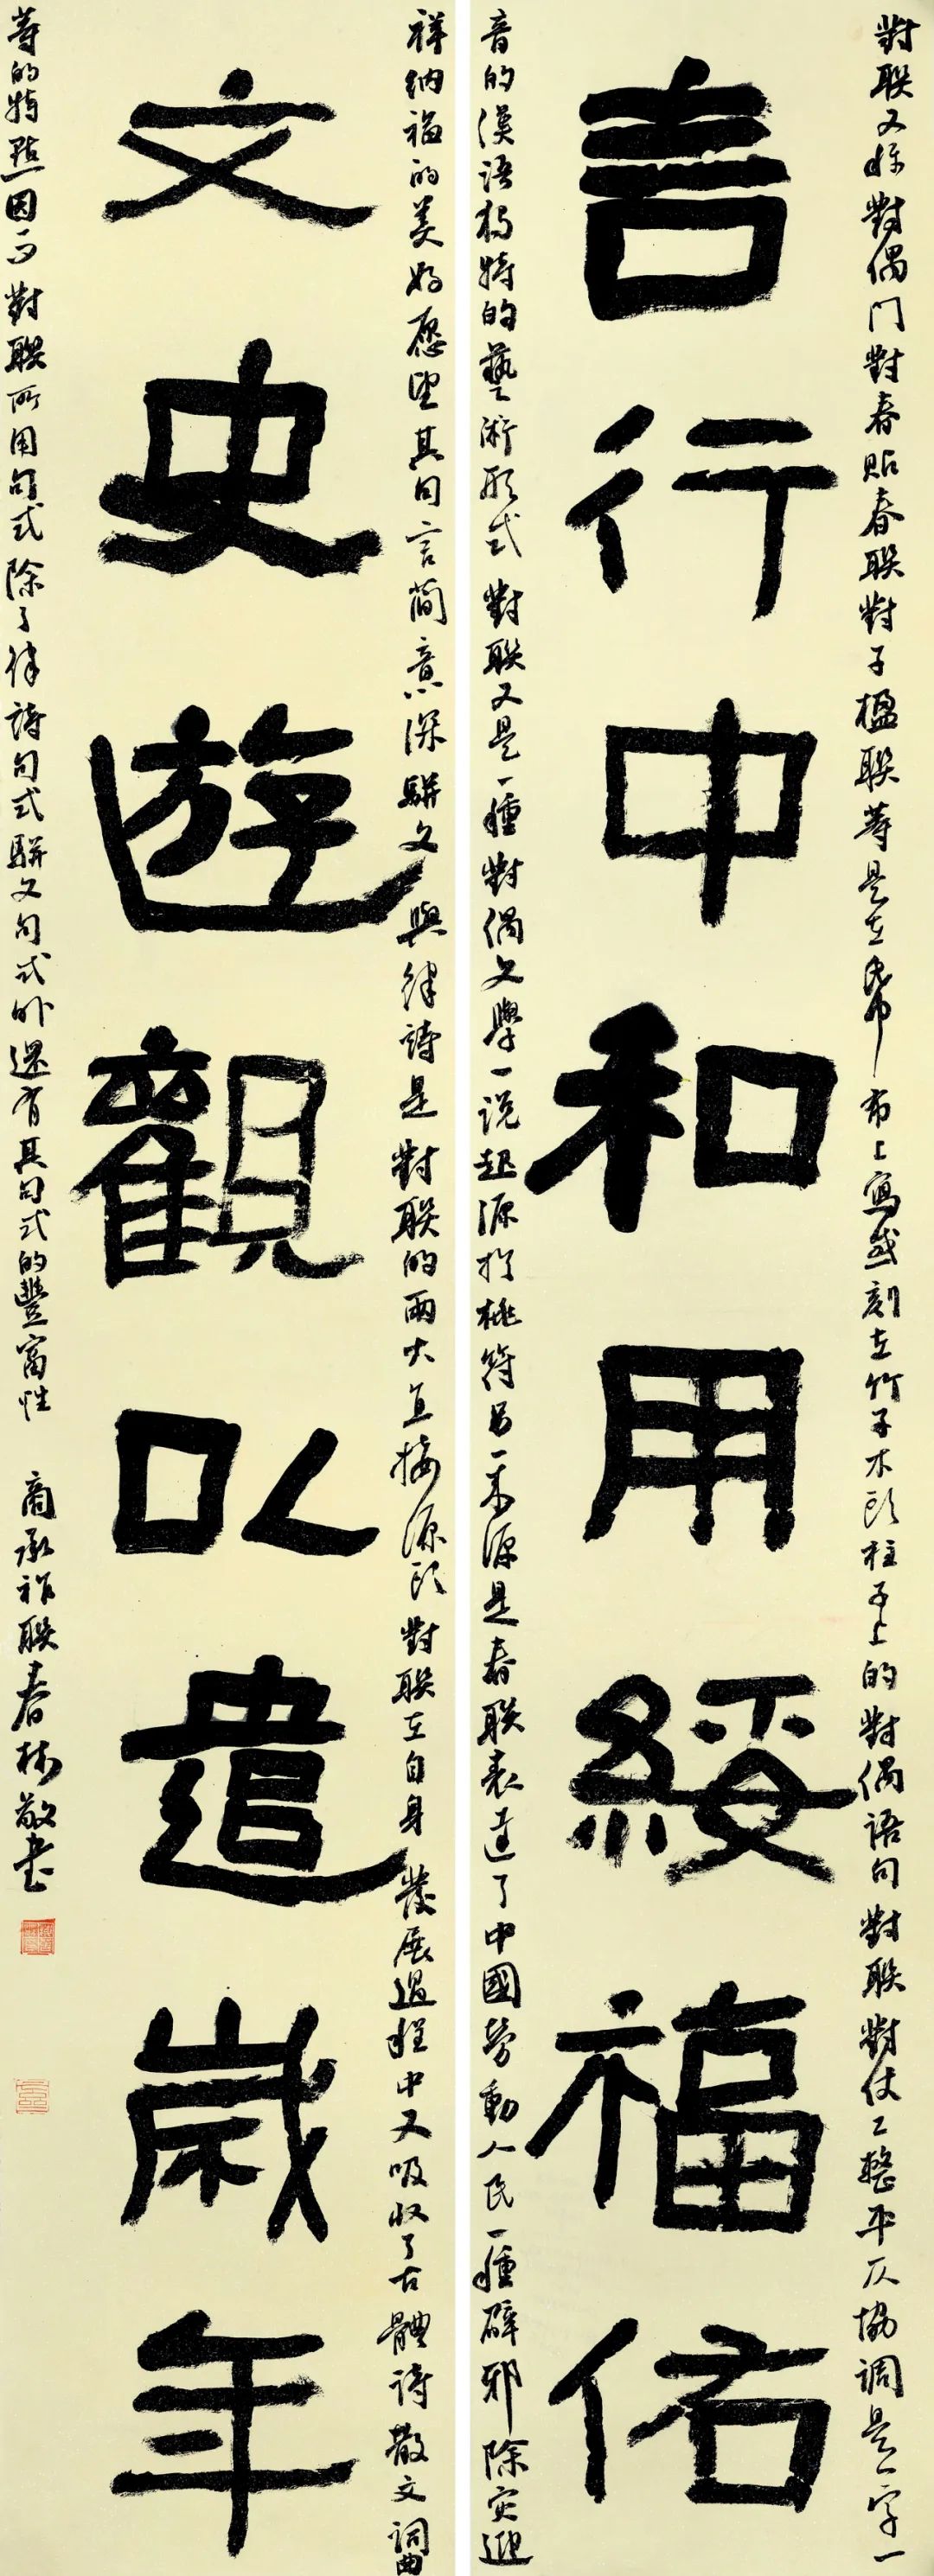 對聯又稱對偶門對春貼春聯對子楹聯等是在紙布上寫或刻在竹子木頭柱子上的對偶語句對聯對仗工整平仄協調是一字一
言行中和用綏福佑
音的漢語獨特的藝術形式對聯又是一種對偶文學一說起源於桃符另一來源是春聯表達了中國勞動人民一種辟邪除災迎
祥納福的美好愿望其句言簡意深駢文與律詩是對聯的兩大直接源頭對聯在自身發展過程中又吸收了古體詩散文詞曲
文史遊觀以遣歲年
等的特點因而對聯所用句式除了律詩句式駢文句式外還有其句式的豐富性
商承祚聯春林敬書